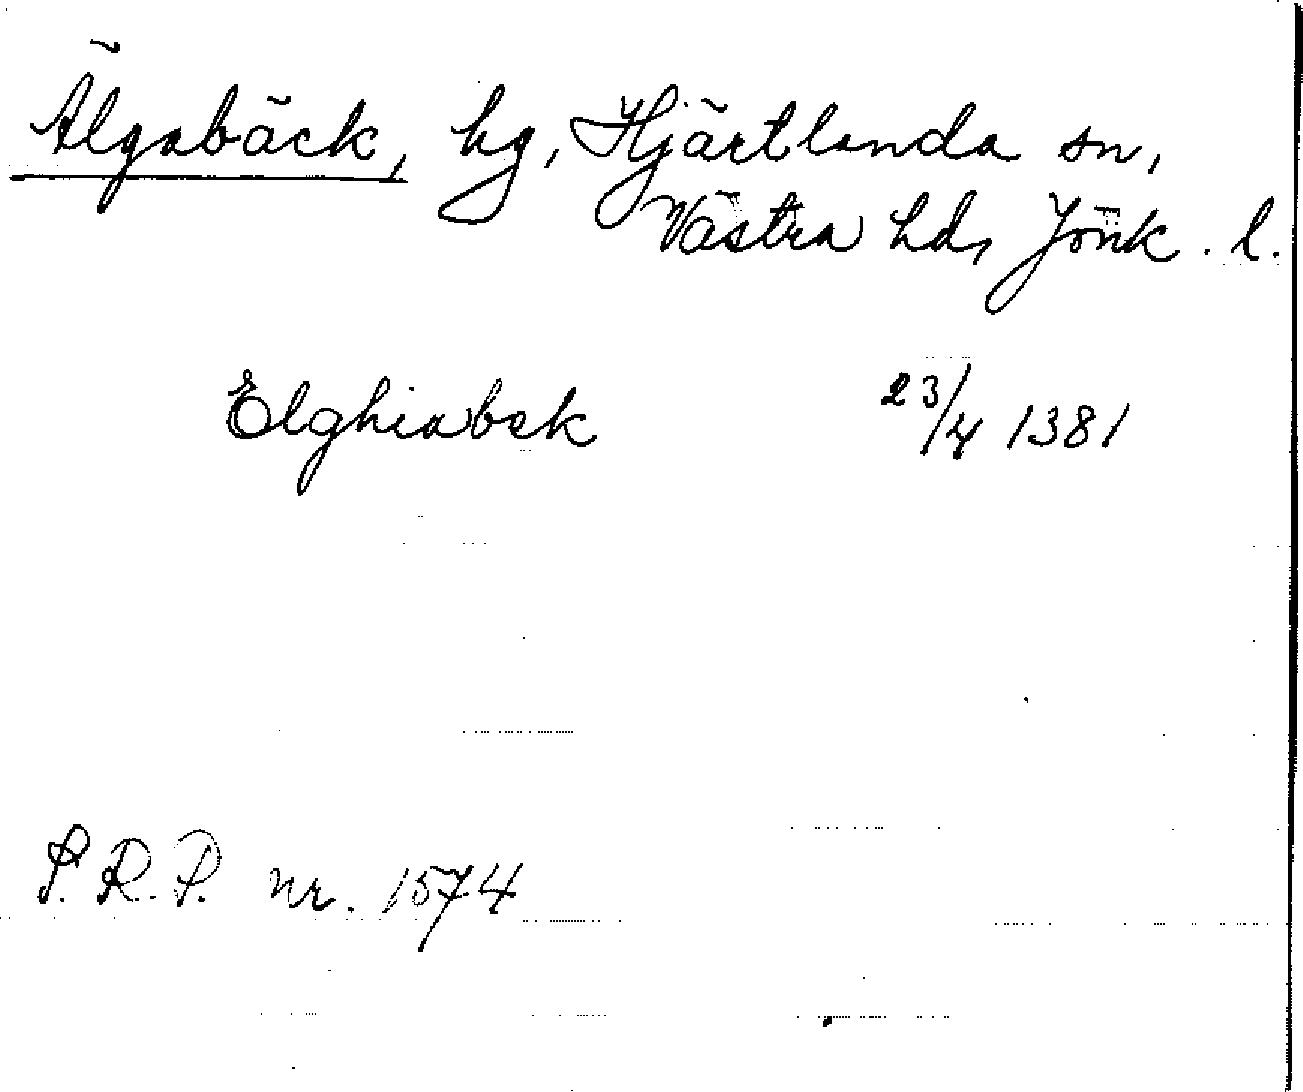 Älgabäck, hg, Hjärtlanda sn,
Västra hd, Jönk. l.
Elghiabek 23/4 1381
S.R.P. nr. 1574